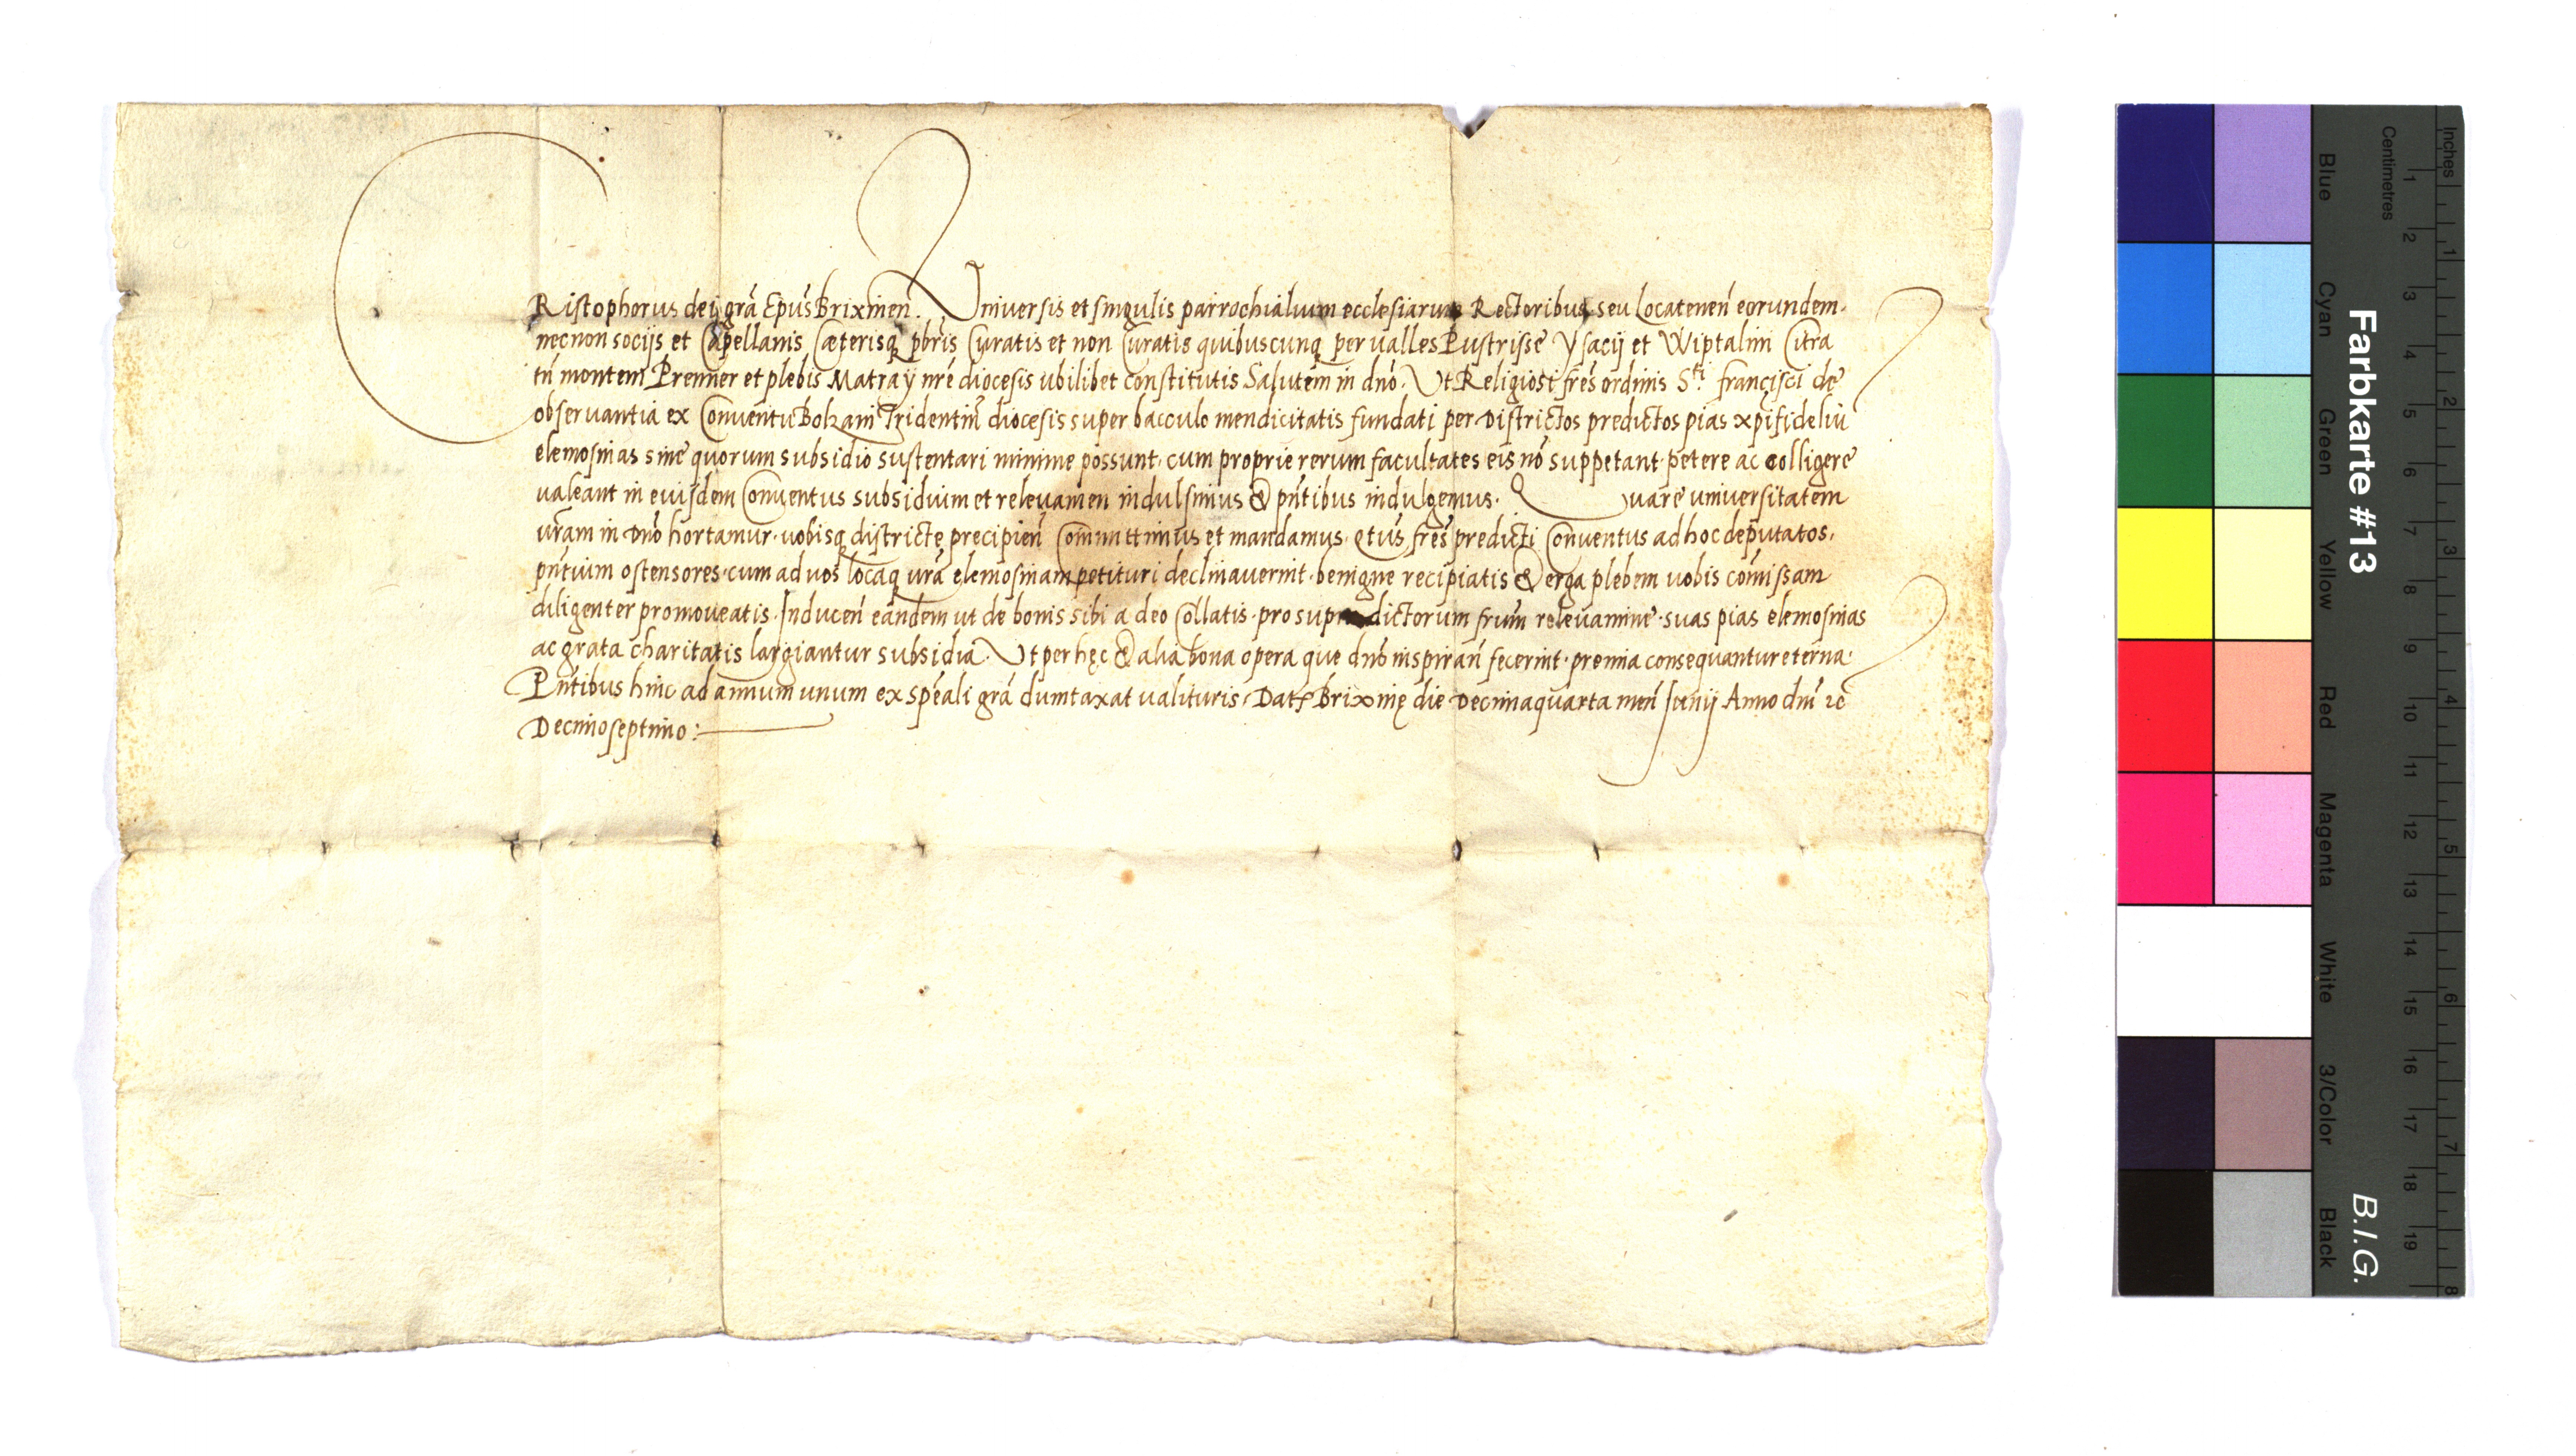 CRistophorus dei grã Epūs Brixinen̄. Universis et singulis parrochialium ecclesiarum Rectoribus seu Locatenen̄ eorundem.
necnon socijs et Capellanis Cæterisq pbris Curatis et non Curatis quibuscunq per valles Pustrisse Ysacij et Wiptalim Citra
tn̄ montem Prenner et plebis Matraÿ nr̄e diocesis ubilibet constitutis Salutem in dn̄o. Ut Religiosi fr̄es ordinis S.ti francisci de
observantia ex Conventu Bolzani Tridentin̄ diocesis super bacculo mendicitatis fundati per Districtos predictos pias xp̄ifideliū
elemosinas sine quorum subsidio sustentari minime possunt. cum proprie rerum facultates eis nō suppetant. petere ac colligere
valeant in eiusdem Conventus subsidium et relevamen indulsimus & pn̄tibus indulgemus. Quare universitatem
vr̄am in Dn̄o hortamur. vobisq districte precipien̄ Committimus et mandamus. qtūs fr̄es predicti Conventus ad hoc deputatos.
pn̄tium ostensores. cum ad vos locaq vr̄a elemosinam petituri declinaverint. benigne recipiatis & erga plebem vobis cōmissam
diligenter promoveatis. Inducen̄ eandem ut de bonis sibi a deo Collatis. pro supra dictorum frūm relevamine. suas pias elemosinas
ac grata charitatis largiantur subsidia. Ut per hęc & alia bona opera que dn̄o inspiran̄ fecerint. premia consequantur eterna.
Pn̄tibus hinc ad annum unum ex sp̄eali grã dumtaxat valituris. Dat Brixinę die Decimaquarta men̄ Junij Anno dn̄i ꝛc̄
Decimoseptimo:
Farbkarte #13
B.I.G.
Inches
Centimetres
1 2 3 4 5 6 7 8 9 10 11 12 13 14 15 16 17 18 19
1 2 3 4 5 6 7 8
Blue
Cyan
Green
Yellow
Red
Magenta
White
3/Color
Black